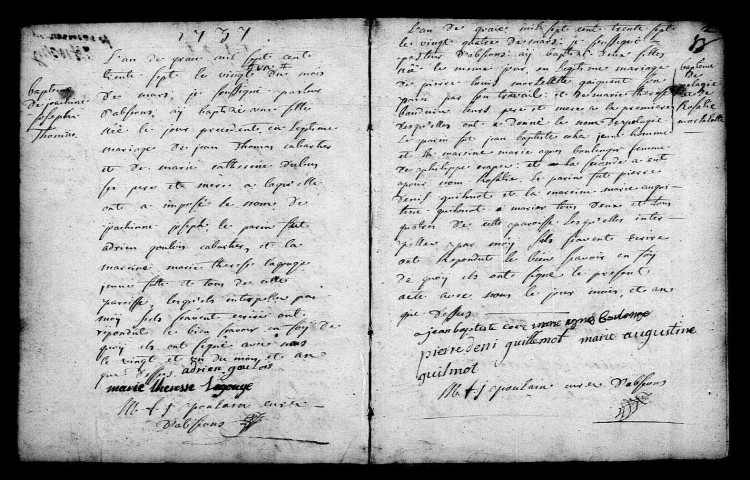 1737
L'an de grace mil sept cent
trente sept le vingt un du mois
de mars, je soussigné pasteur
d'abscons, aÿ baptisé une fille
née le jour precedent, en legitime
mariage de jean Thomas cabartier
et de marie catherine Dubus
ses pere et mere a laquelle
on a imposé le nom de
joachime joseph, le parin fut
adrien goulois cabartier, et la
marine marie therese lagouge
jeune fille et tous de cette
paroisse, lesquels interpellés par
moÿ s'ils scavent ecrire ont
repondut le bien scavoir en foÿ de
quoÿ ils ont signé avec nous
le vingt et un du mois et an
que dessus adrien goulois
marie theresse Lagouge
M f j poulain curé
d'abscons
baptême
de joachime
josephe
Thomas
L'an de grace mil sept cent trente sept
le vingt quatre de mars je soussigné
pasteur d'abscons aÿ baptisé deux filles
née le meme jour en legitime mariage
de pierre louis mortelette gaignant son
pain par son travail et de marie therese
bauduin leurs pere et mere a la premiere
desquelles ont a donné le nom de pelagie
le parin fut jean baptiste jeune homme
et la marine marie agnes boulenger femme
de philippe et la seconde a eut
pour nom Rosalie. Le parin fut pierre
denis guilmot et la marine marie augus-
tine guilmot a marier tous deux et tous
quatres de cette paroisse lesquelles inter-
pellés par moÿ s'ils scavent ecrire
ont repondut le bien scavoir en foÿ
de quoÿ ils ont signé le present
acte avec nous le jour mois, et an
que dessus
jean baptiste marie agnes boulenge
pierre deni guillemot marie augustine
guilmot
M f j poulain curé d'abscons
baptême
de
pelagie
et de
Rosalie
mortelette